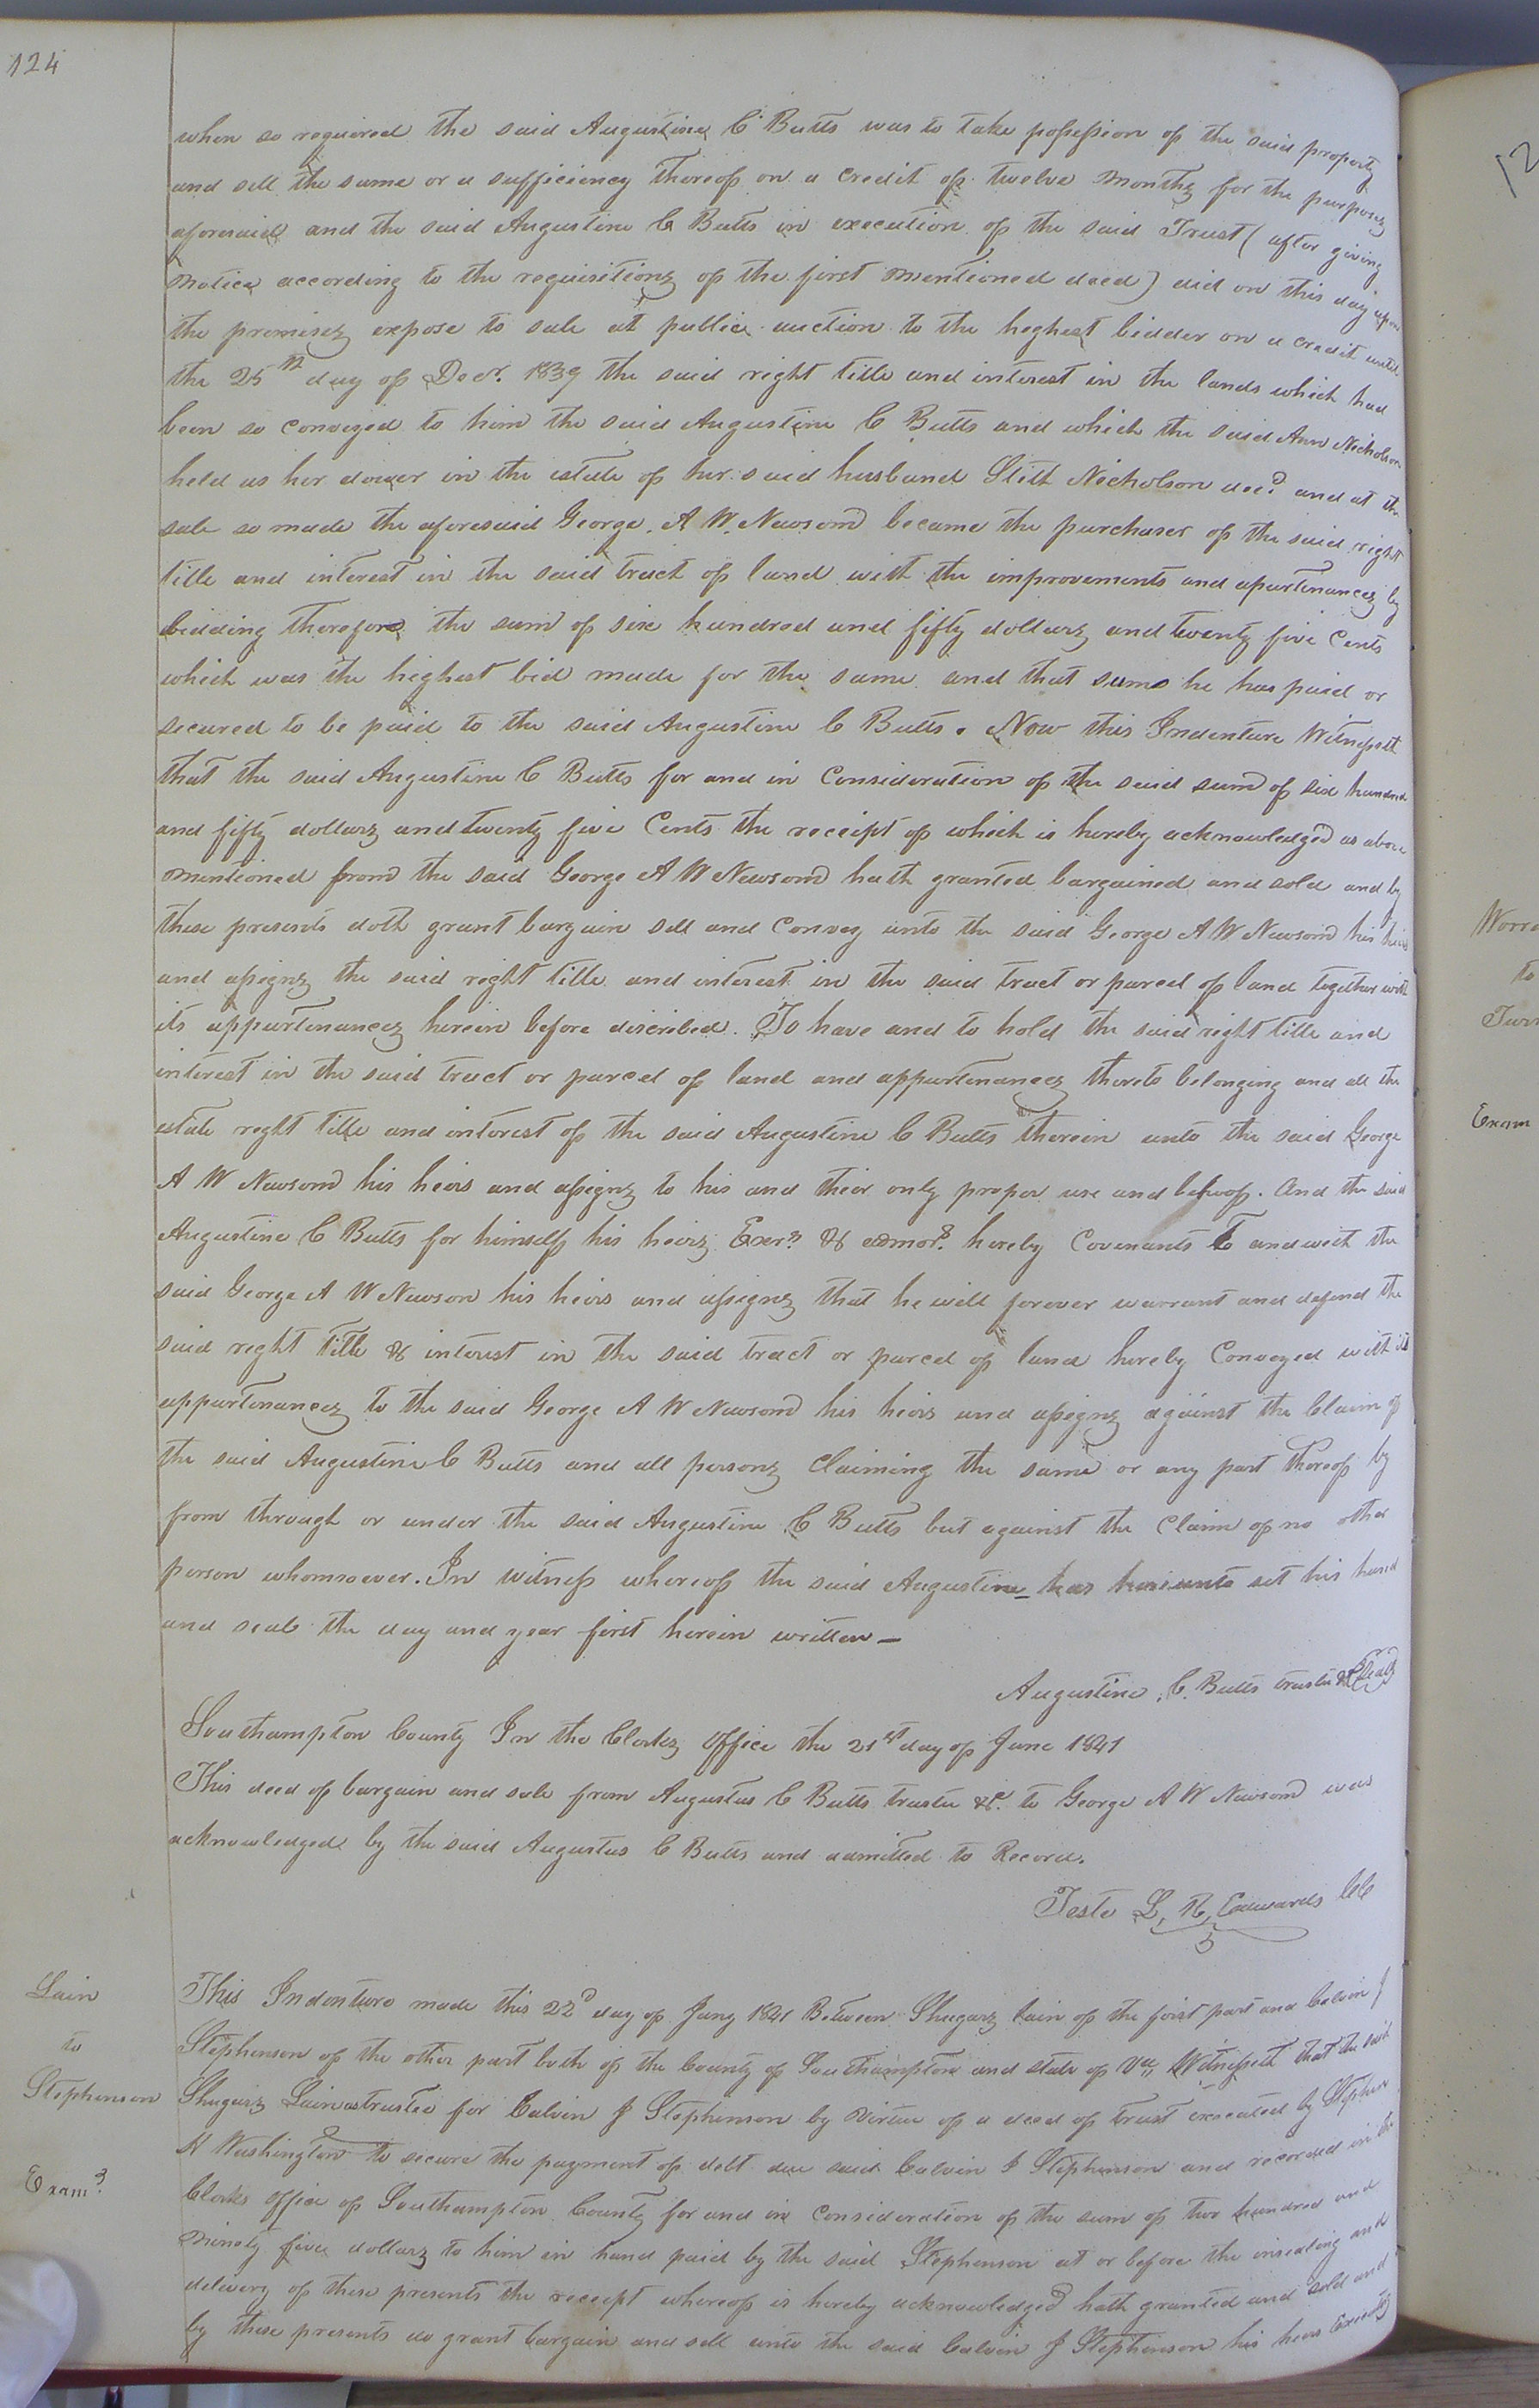 124
when so required the said Augustine C Butts was to take possession of the said property
and sell the same or a sufficiency thereof on a credit of twelve months for the purposes
aforesaid and the said Augustine C Butts in execution of the said Trust (after giving
notice according to the requisitions of the first mentioned deed) did on this day upon
the premises expose to sale at public auction to the highest bidder on a credit until
the 25th day of Decr. 1839 the said right title and interest in the lands which had
been so conveyed to him the said Augustine C Butts and which the said Ann Nicholson
held as her dower in the estate of her said husband Stith Nicholson decd. and at the
sale so made the aforesaid George A W. Newsom became the purchaser of the said right
title and interest in the said tract of land with the improvements and apurtenances by
bidding therefore the sum of six hundred and fifty dollars and twenty five Cents
which was the highest bid made for the same and that sum he has paid or
secured to be paid to the said Augustine C Butts. Now this Indenture Witnesseth
that the said Augustine C Butts for and in Consideration of the said sum of six hundred
and fifty dollars and twenty five Cents the receipt of which is hereby acknowledged as above
mentioned from the said George A W Newsom hath granted bargained and sold and by
these presents doth grant bargain sell and Convey unto the said George A W Newsom his heirs
and assigns the said right title and interest in the said tract or parcel of land together with
its appurtenances herein before discribed. To have and to hold the said right title and
interest in the said tract or parcel of land and appurtenances thereto belonging and all the
estate right title and interest of the said Augustine C Butts therein unto the said George
A W Newsom his heirs and assigns to his and their only proper use and behoof. And the said
Augustine C Butts for himself his heirs Exers. & admors. hereby Covenants to and with the
said George A W Newson his heirs and assigns that he will forever warrant and defend the
said right title & interest in the said tract or parcel of land hereby Conveyed with its
appurtenances to the said George A W Newsom his heirs and assigns against the Claim of
the said Augustine C Butts and all persons Claiming the same or any part thereof by
from through or under the said Augustine C Butts but against the Claim of no other
person whomsoever. In witness whereof the said Augustine has hereunto set his hand
and seal the day and year first herein written —
Augustine C. Butts trustee &c Seal
Southampton County In the Clerks Office the 21st day of June 1841
This deed of bargain and sale from Augustus C Butts trustee &c. to George A W Newsom was
acknowledged by the said Augustus C Butts and admitted to Record.
Teste L, R, Edwards CC
Lain
to
Stephenson
Examd.
This Indenture made this 22d day of Jany 1841 Between Shugars Lain of the first part and Calvin J
Stephenson of the other part both of the County of Southampton and state of Va,, Witnesseth that the said
Shugars Lain as trustee for Calvin J Stephenson by virtue of a deed of trust executed by Stephen
H Washington to secure the payment of debt due said Calvin J Stephenson and recorded in the
Clerks office of Southampton County for and in Consideration of the sum of two hundred and
ninety five dollars to him in hand paid by the said Stephenson at or before the insealing and
delivery of these presents the receipt whereof is hereby acknowledged hath granted and sold and
by these presents do grant bargain and sell unto the said Calvin J Stephenson his heirs
12
to
Exam